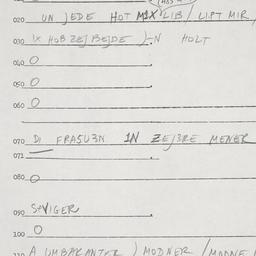 020 UN JEDE HOT MIX LIB / LIPT MIR,
030 IX HOB ZEJ BEJDE )-N HOLT
040 O
050 O
060 O
070 DI FRASU3N IN ZEJ3RE MENER
071 .
080 O
090 SVIGER
100 O
110 A UMBAKANTER ) MODNER /